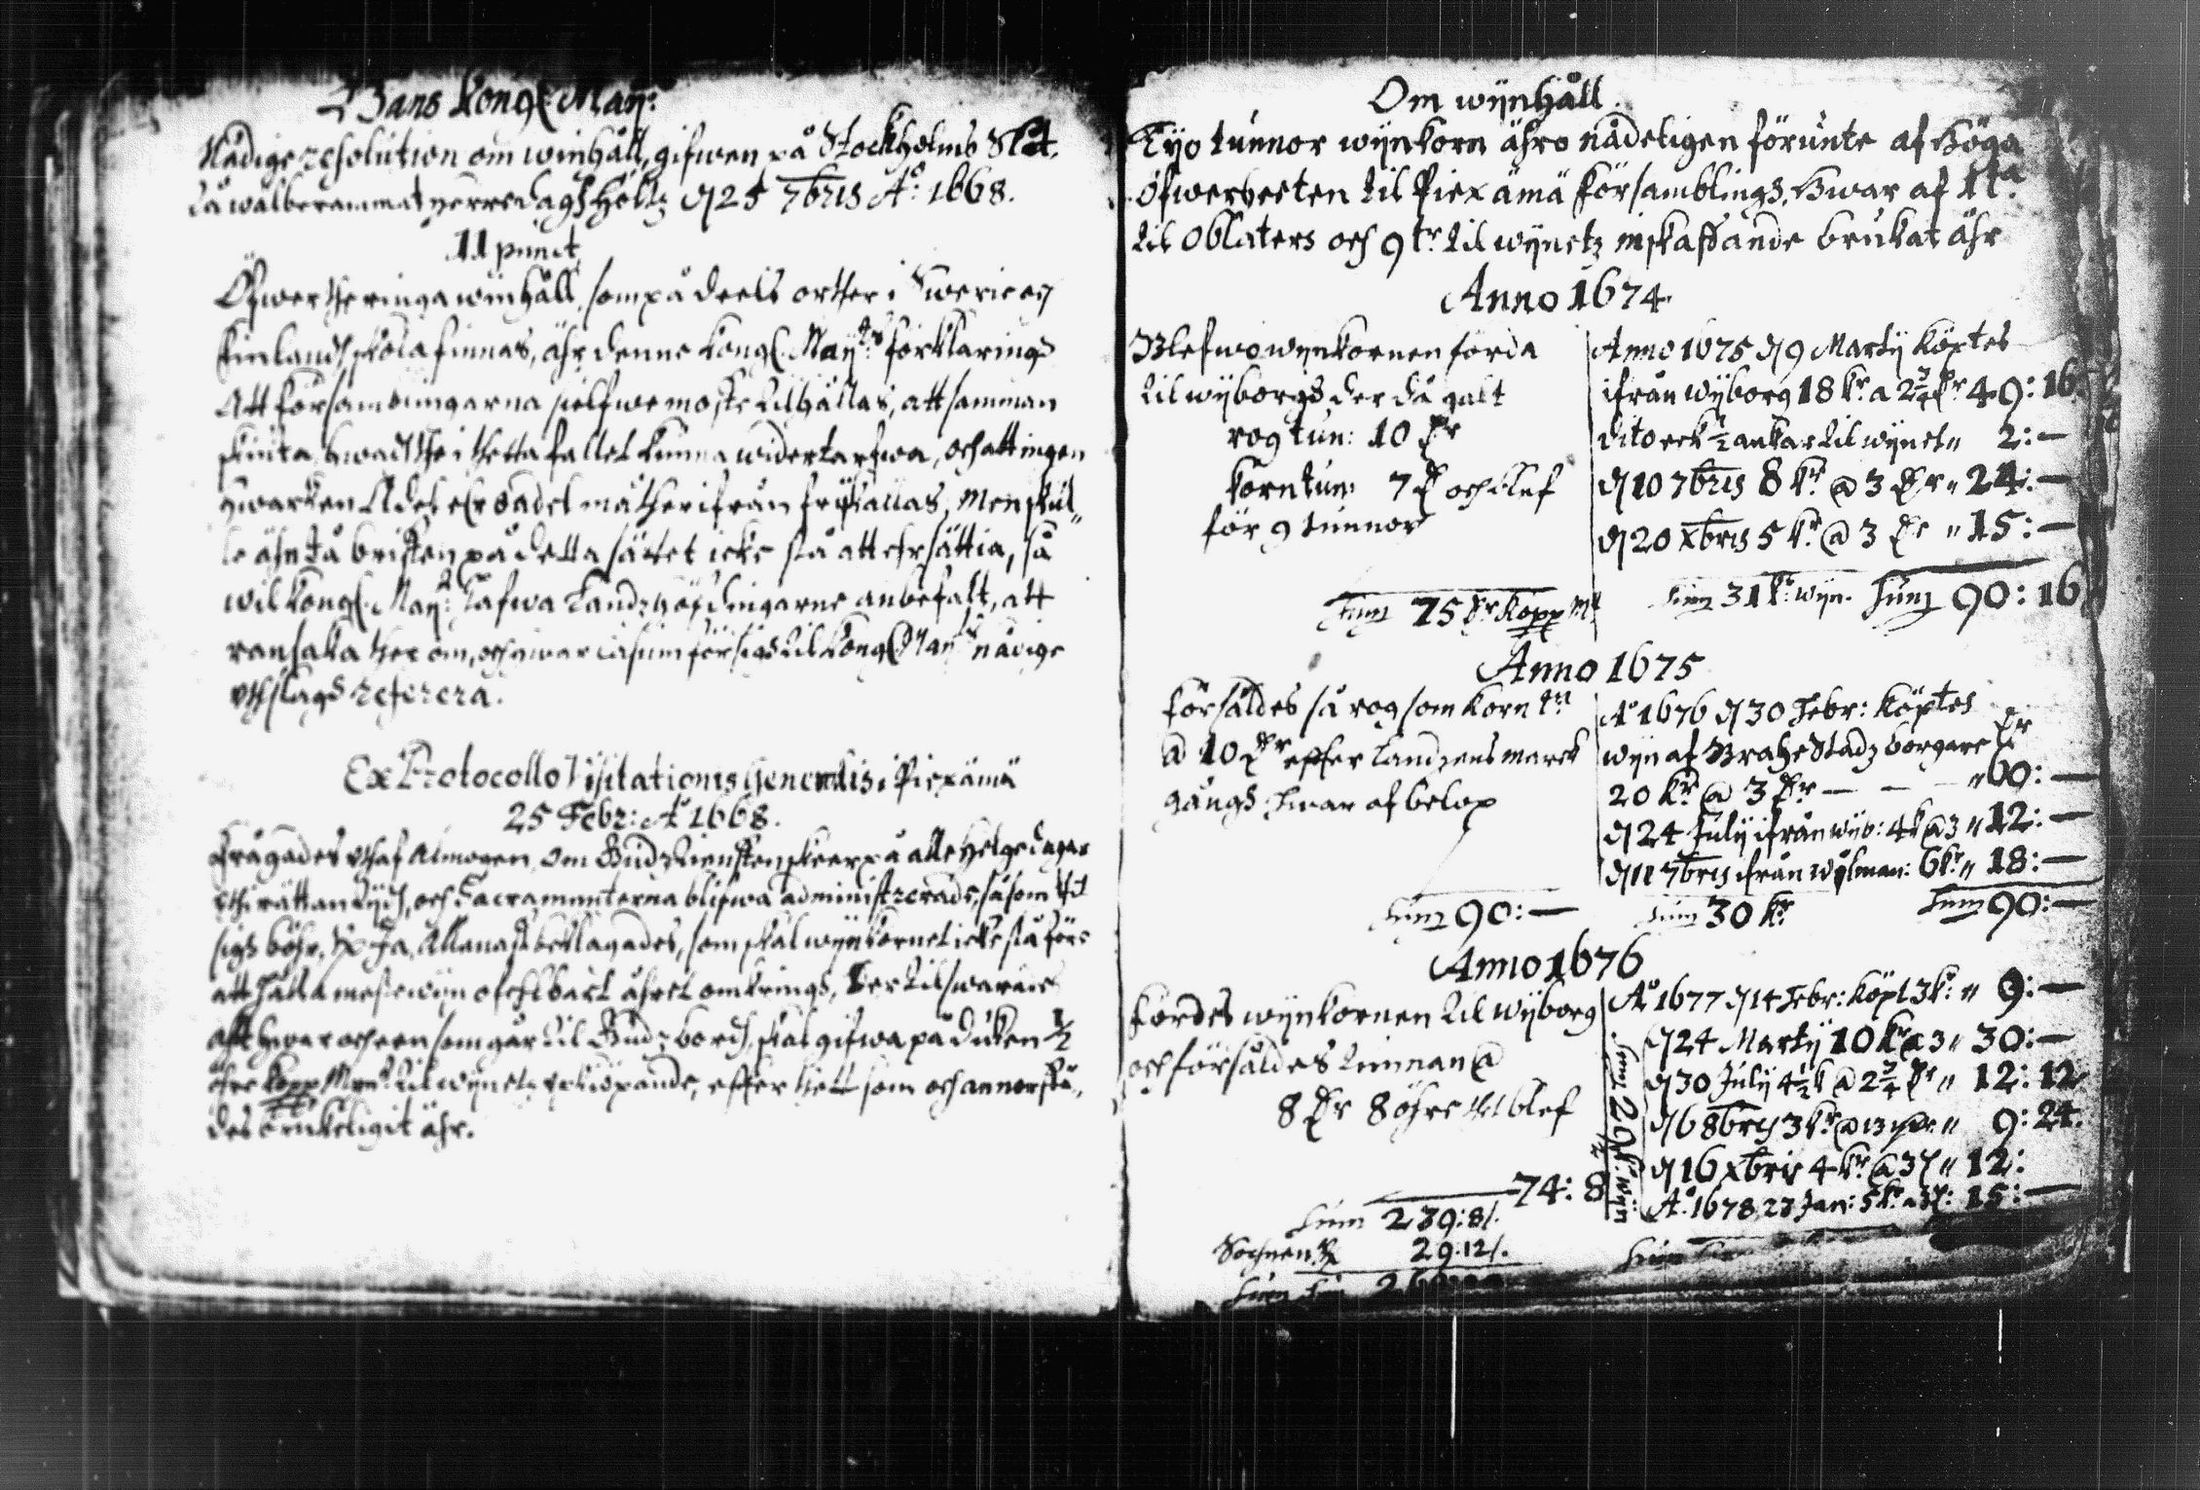 Hans Kongl: Maij:
Nådige resolution om winhåll, gifwen på Stockholms Slåt,
då wälberammat herredagh höltz d 25 7bris A:o 1668.
11 punct.
Öfwer the ringa winhåll, som på deels orther i Swerie och
Finlandh skola finnas, ähr denne Kongl: Maij:ts förklaringh
Att församblingarna sielfwe moste tilhållas, att samman
skiuta hwadh the i thetta fallet kunna widertarfwa, och att ingen
hwarken Adel eller Oadel må ther ifrån frijkallas, Men skul„
le ähn då bristen på detta sättet icke stå att ersättia, så
wil Kongl: Maij:t hafwa Landzhöfdingarne anbefalt, att
ransaka ther om, och hwar casum för sigh til Kongl Maij:ts nådige
uthslagh referera.
Ex Protocollo Visitationis Generalis i Piexämä
25 Febr: A:o 1668.
Frågades uthaf Almogen, Om Gudztiensten skeer på alle helgedagar
i rättan tijdh, och Sacramenterna blifwa administrerade, såsom thet
sigh böhr, Rx Ja, Allenast beklagades, som skal wijnkornet icke stå före
att halla messewijn ofehlbart åhret omkringh, Ther til swarades
att hwar och een som går til Gudz bordh, skal gifwa på duken ½
öhre kopp M:nt til wijnetz upkiöpande, effter thett som och annorstä„
des brukeligit ähr.
Om wijnhåll.
Tijo tunnor wijnkorn ähro nådeligen förunte af Höga
Öfwerheeten til Piexämä församblingh, Hwar af 1 t:a
til Oblater och 9 t:r til wijnetz inskaffande brukat ähr
Anno 1674.
Blefwo wijnkornen förda
til wijborgh der då galt
rog tun: 10 Dr
korn tun: 7 D och blef
för 9 tunnor
Sum 75 Dr Kopp M:t
Anno 1675 d 9 Martij köptes
ifrån wijborg 18 k:r a 2¾ Dr 49: 16
dito eek ½ ankar til wijnet „ 2: —
d 10 7bris 8 k:r @ 3 Dr „ 24: —
d 20 xbris 5 k:r @ 3 Dr „ 15: —
Sum 31 k:r wijn. Sum 90: 16
Anno 1675
försåldes så rog som korn t:n
@ 10 Dr effter Landzens marck
gångh hwar af belop
Sum 90: —
A:o 1676 d 30 Febr: köptes
wijn af Brahestadz borgare Dr
20 k:r @ 3 Dr — — — „ 60: —
d 24 Julij ifrån wijb: 4 k @ 3 „ 12: —
d 11 7bris ifrån Wijlman: 6 k:r „ 18: —
Sum 30 k:r Sum 90: —
Anno 1676
fördes wijnkornen til wijborg
och försåldes tunnan @
8 Dr 8 öhre thet blef
74: 8
Sum 239: 8/.
Sochnen 29. 12/.
Sum Sum
A:o 1677 d 14 Febr: köpt 3 k: „ 9: —
d 24 Martij 10 k:r a 3 „ 30: —
d 30 Julij 4½ k @ 2¾ Dr „ 12: 12
d 6 8bris 3 k:r @ 13 „ 9: 24.
d 16 xbris 4 k:r @ 3 „ 12:
A:o 1678 23 Jan: 5 k: a 3: 15: —
Sum 29½ k: wijn
Sum